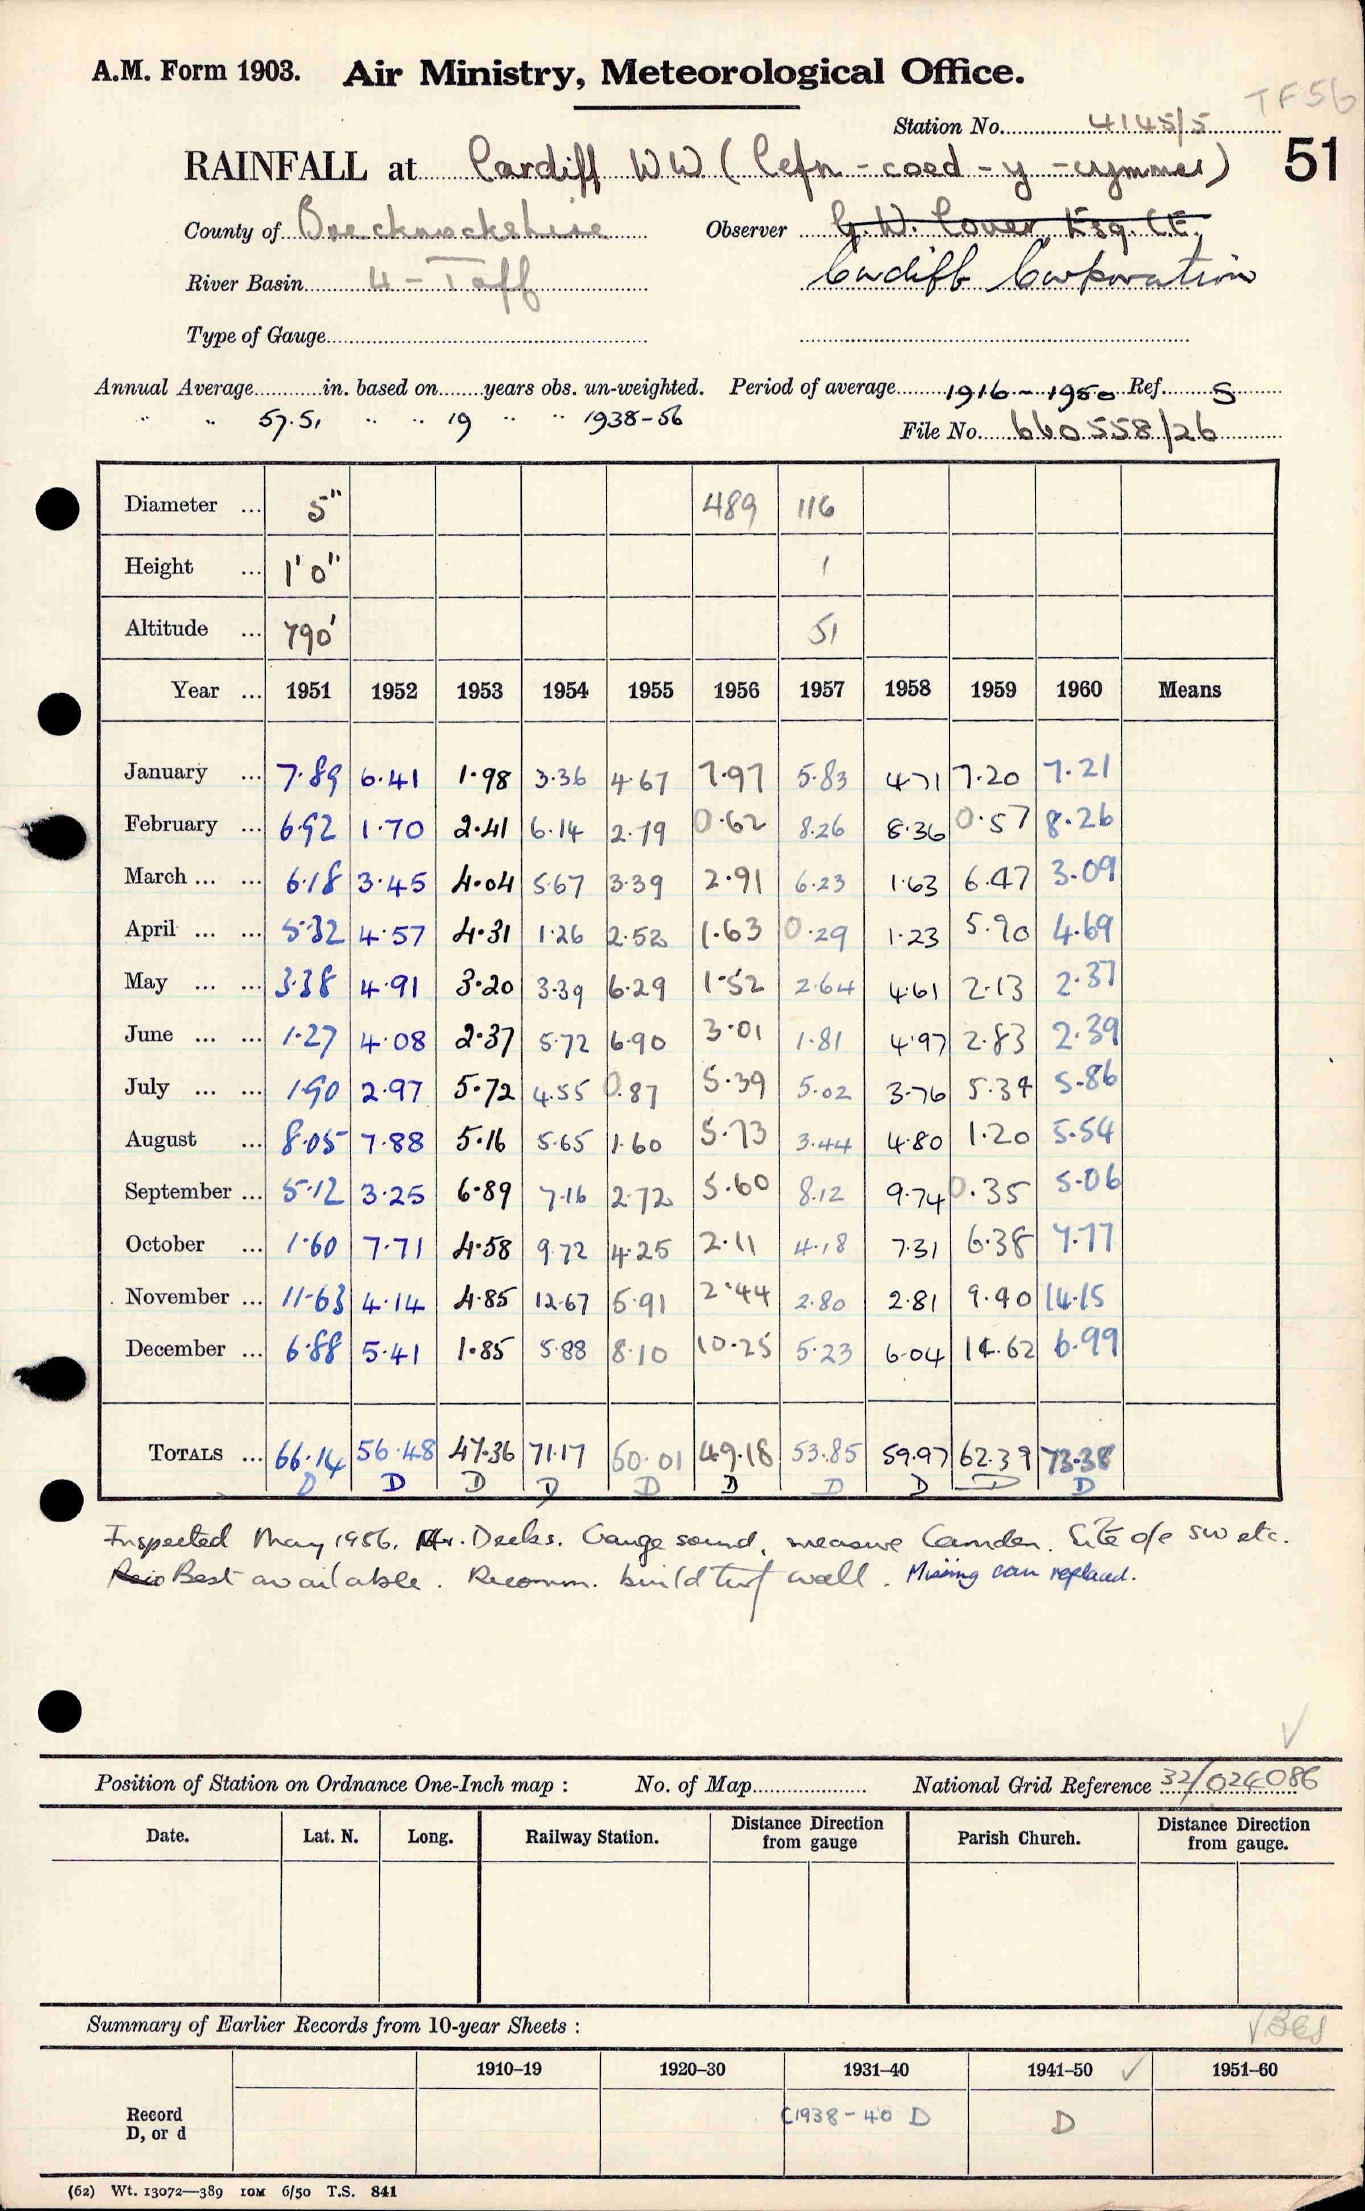 TF56
A.M. Form 1903. Air Ministry, Meteorological Office.
Station No. 4145/5
51
RAINFALL at Cardiff WW (Cefn-coed-y-cymmer)
County of Brecknockshire Observer G.W. Cover Esq. C.E.
River Basin 4 - Taff Cardiff Corporation
Type of Gauge
Annual Average in. based on years obs. un-weighted. Period of average 1916-1950 Ref. S
" " 57.51 " " 19 " " 1938-56
File No. 660558/26
Diameter ... 5" 489 116
Height ... 1'0" 1
Altitude ... 790' 51
Year ... 1951 1952 1953 1954 1955 1956 1957 1958 1959 1960 Means
January ... 7.89 6.41 1.98 3.36 4.67 7.97 5.83 4.71 7.20 7.21
February ... 6.92 1.70 2.41 6.14 2.79 0.62 8.26 8.36 0.57 8.26
March ... ... 6.18 3.45 4.04 5.67 3.39 2.91 6.23 1.63 6.47 3.09
April ... ... 5.32 4.57 4.31 1.26 2.52 1.63 0.29 1.23 5.90 4.69
May ... ... 3.38 4.91 3.20 3.39 6.29 1.52 2.64 4.61 2.13 2.37
June ... ... 1.27 4.08 2.37 5.72 6.90 3.01 1.81 4.97 2.83 2.39
July ... ... 1.90 2.97 5.72 4.55 0.87 5.39 5.02 3.76 5.34 5.86
August ... 8.05 7.88 5.16 5.65 1.60 5.73 3.44 4.80 1.20 5.54
September ... 5.12 3.25 6.89 7.16 2.72 5.60 8.12 9.74 0.35 5.06
October ... 1.60 7.71 4.58 9.72 4.25 2.11 4.18 7.31 6.38 7.77
November ... 11.63 4.14 4.85 12.67 5.91 2.44 2.80 2.81 9.40 14.15
December ... 6.88 5.41 1.85 5.88 8.10 10.25 5.23 6.04 14.62 6.99
TOTALS ... 66.14 56.48 47.36 71.17 50.01 49.18 53.85 59.97 62.39 73.38
D D D D D D D D D D
Inspected May 1956. Mr. Deeks. Gauge sound, measure Camden. Site o/e SW etc.
Best available. Recomm. build turf wall. Missing can replaced.
Position of Station on Ordnance One-Inch map : No. of Map National Grid Reference 32/024086
Date. Lat. N. Long. Railway Station. Distance Direction from gauge Parish Church. Distance Direction from gauge.
Summary of Earlier Records from 10-year Sheets :
1910–19 1920–30 1931–40 1941–50 ✓ 1951–60
Record
D, or d
(1938-40 D D
(62) Wt. 13072—389 10M 6/50 T.S. 841